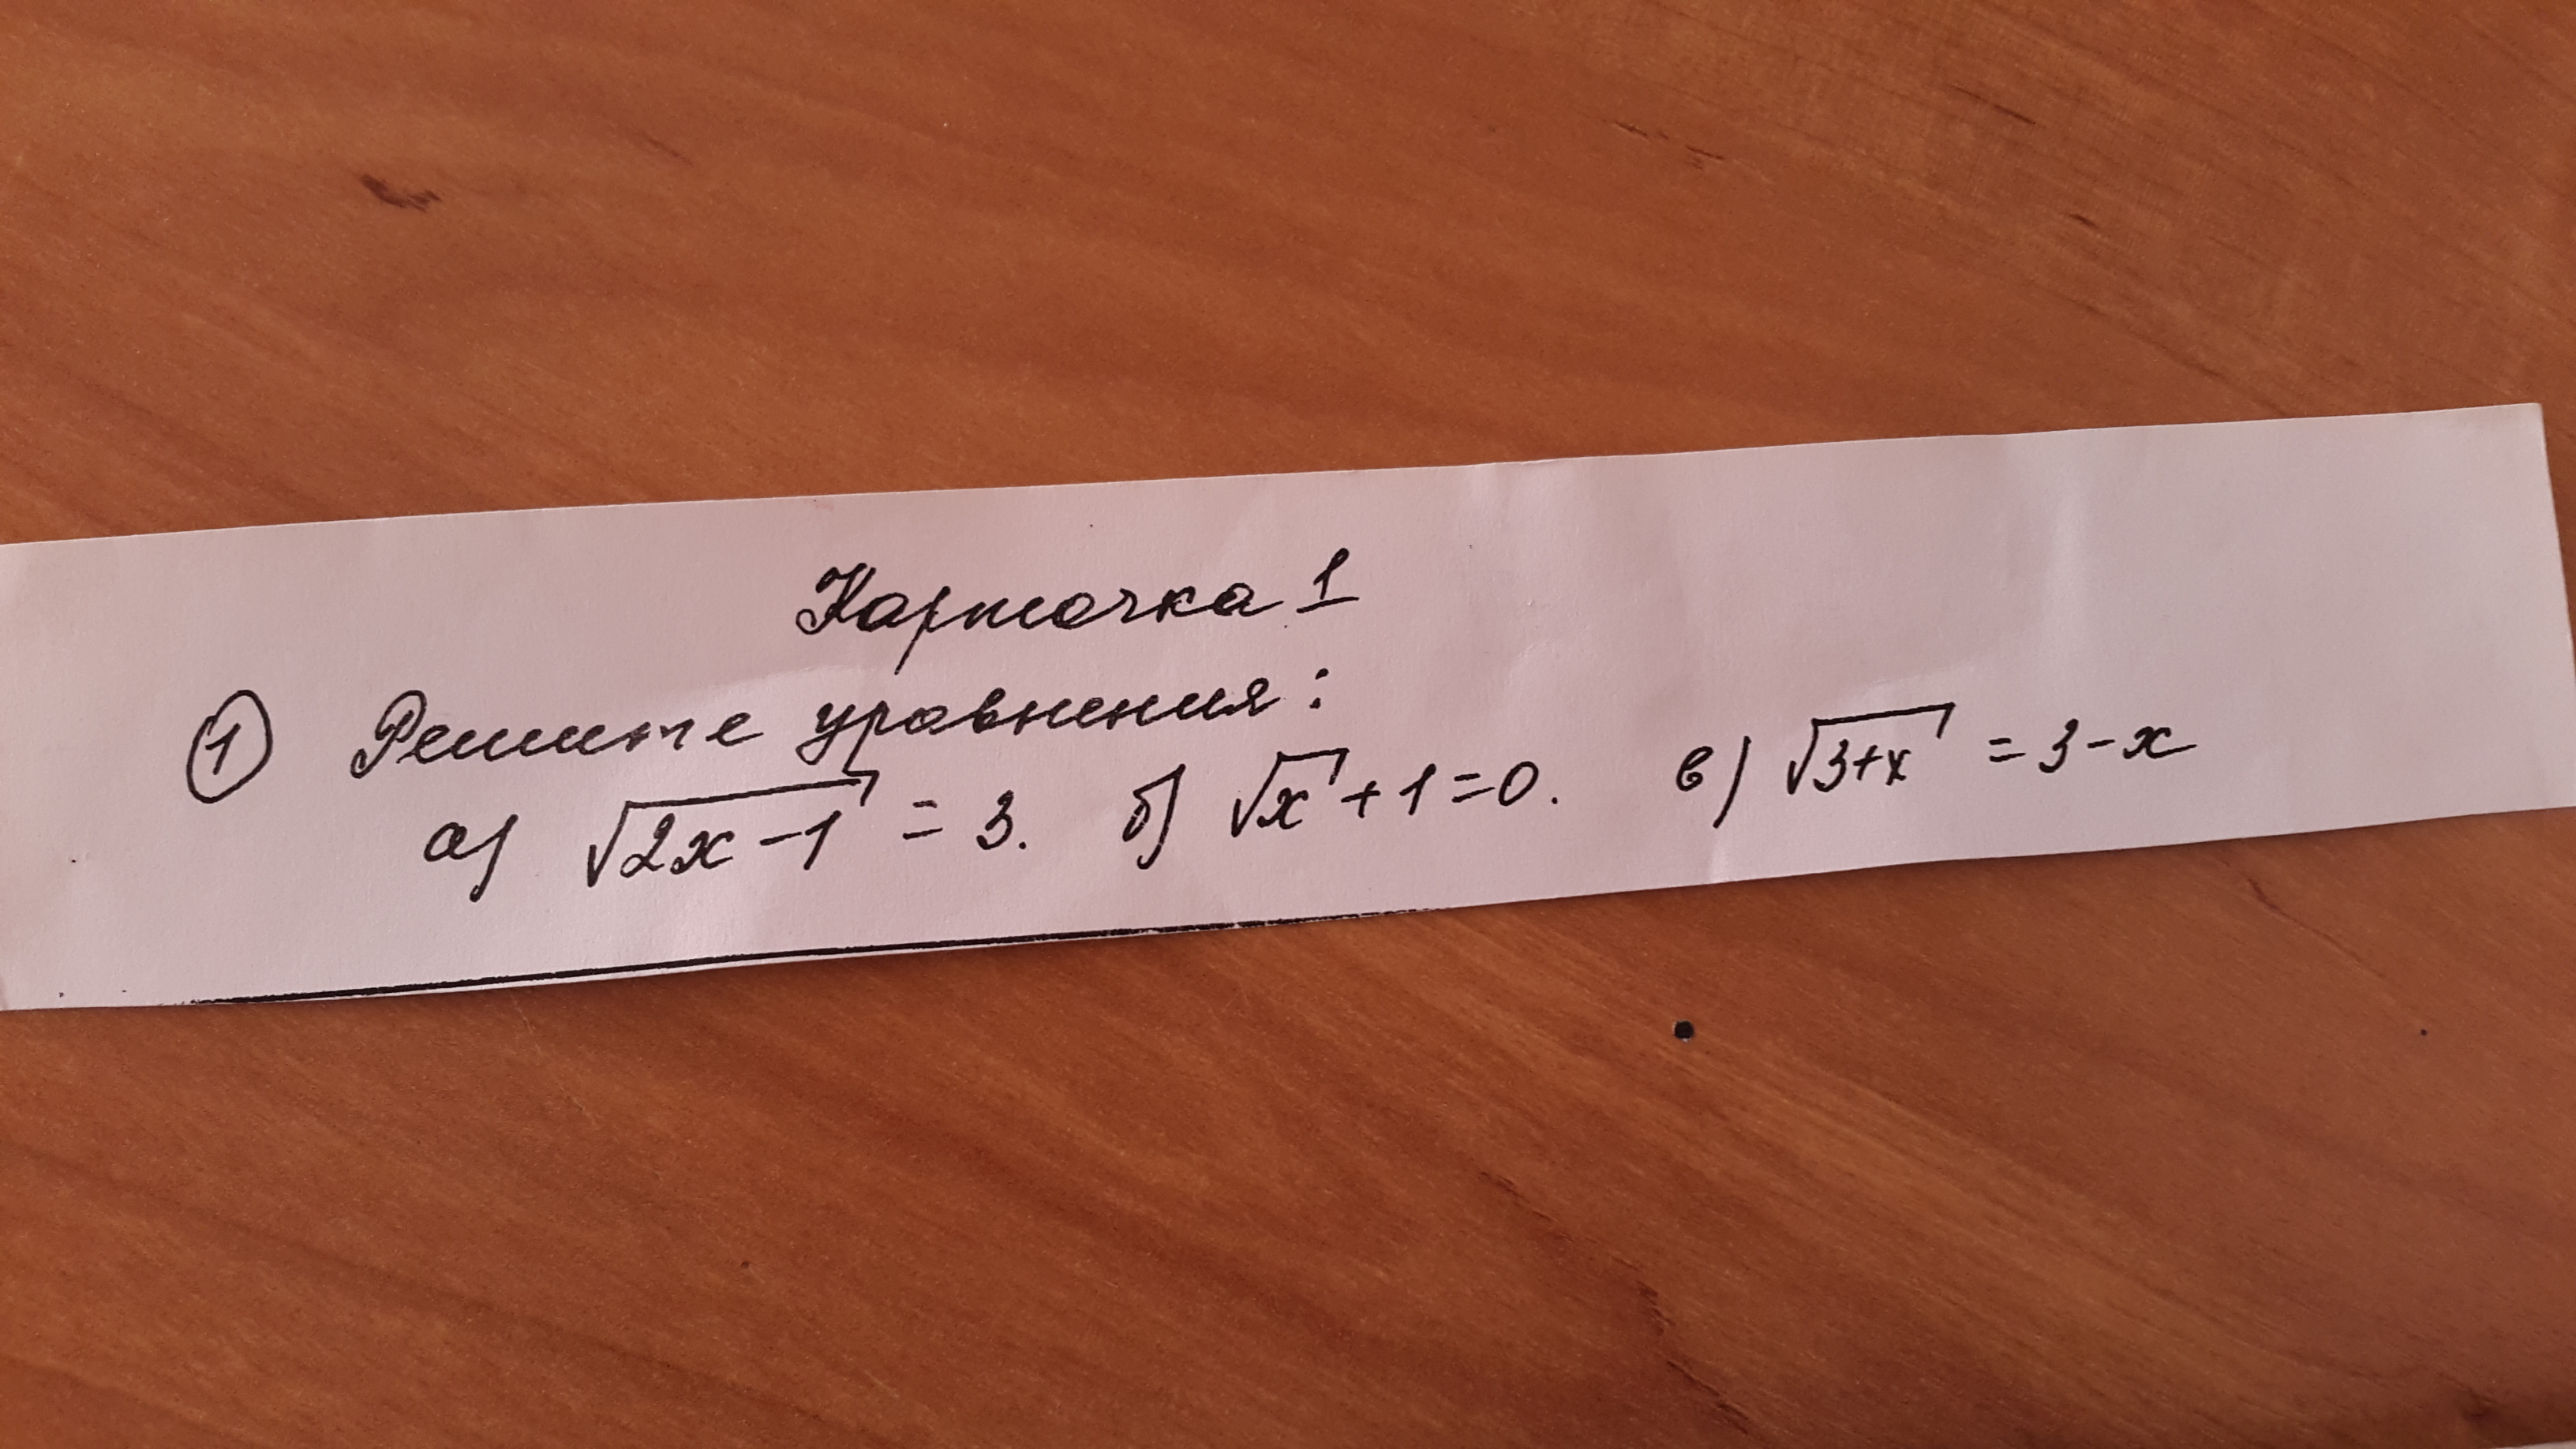 Карточка 1
① Решите уравнения:
а) √2x-1 = 3. б) √x + 1 = 0. в) √3+x = 3-x